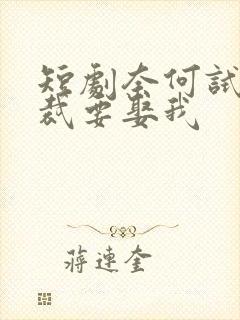 短劇奈何試
裁要娶我
蔣連奎